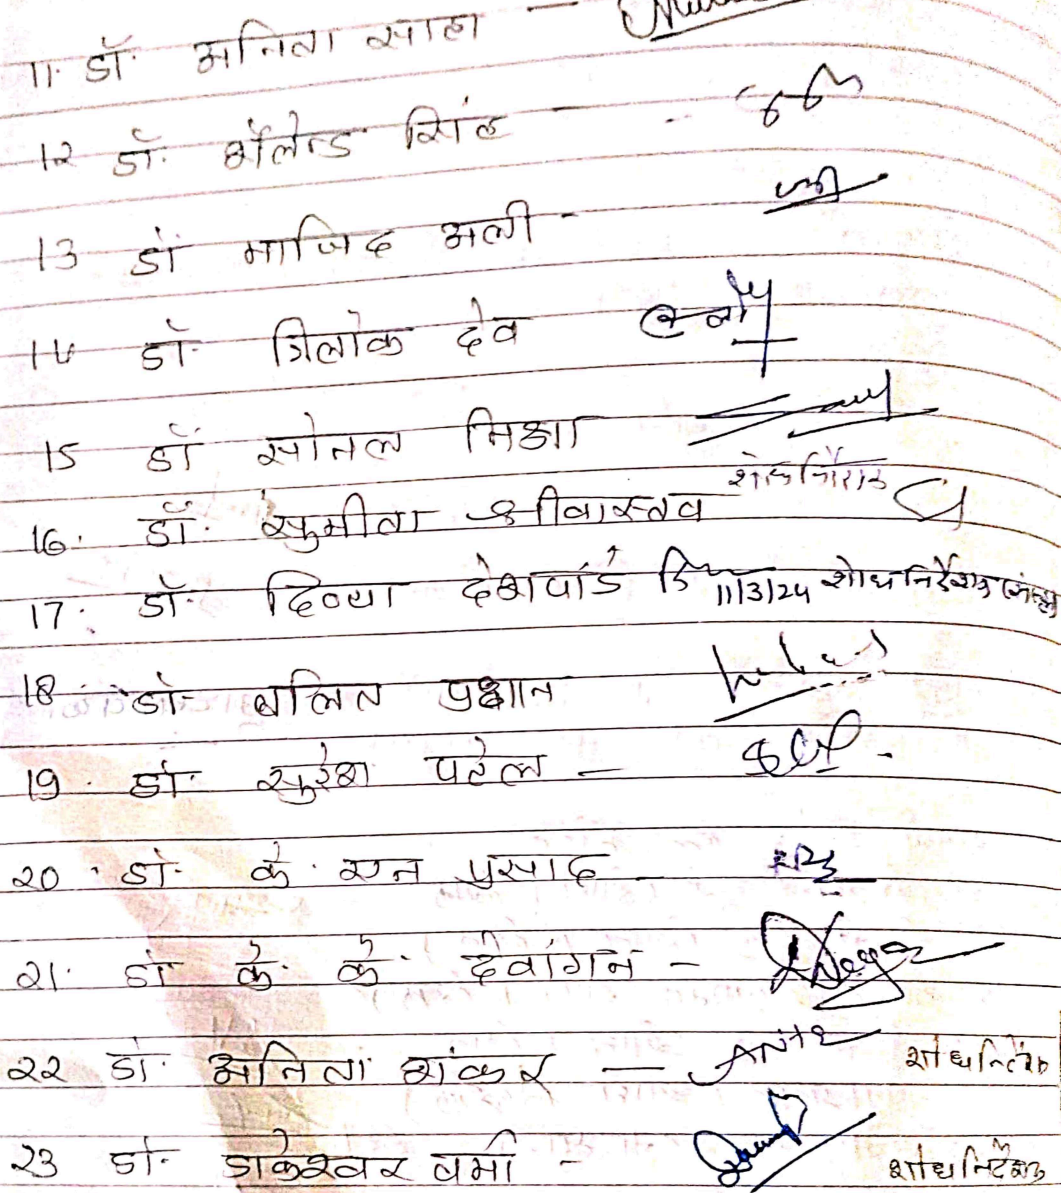 11. डॉ. अनिता साहा -
12 डॉ. शैलेन्द्र सिंह -
13 डॉ माजिद अली -
14 डॉ. त्रिलोक देव
15 डॉ सोनल मिश्रा
16. डॉ. सुमीता श्रीवास्तव शोध निर्देशक
17. डॉ. दिव्या देशपांडे 11/3/24 शोध निर्देशक
18 डॉ. ललित प्रधान
19. डॉ. सुरेश पटेल -
20. डॉ. के. एन प्रसाद -
21. डॉ के. के. देवांगन -
22 डॉ. अनिता शंकर - Anita शोध निर्देशक
23 डॉ. डाकेश्वर वर्मा - शोध निर्देशक